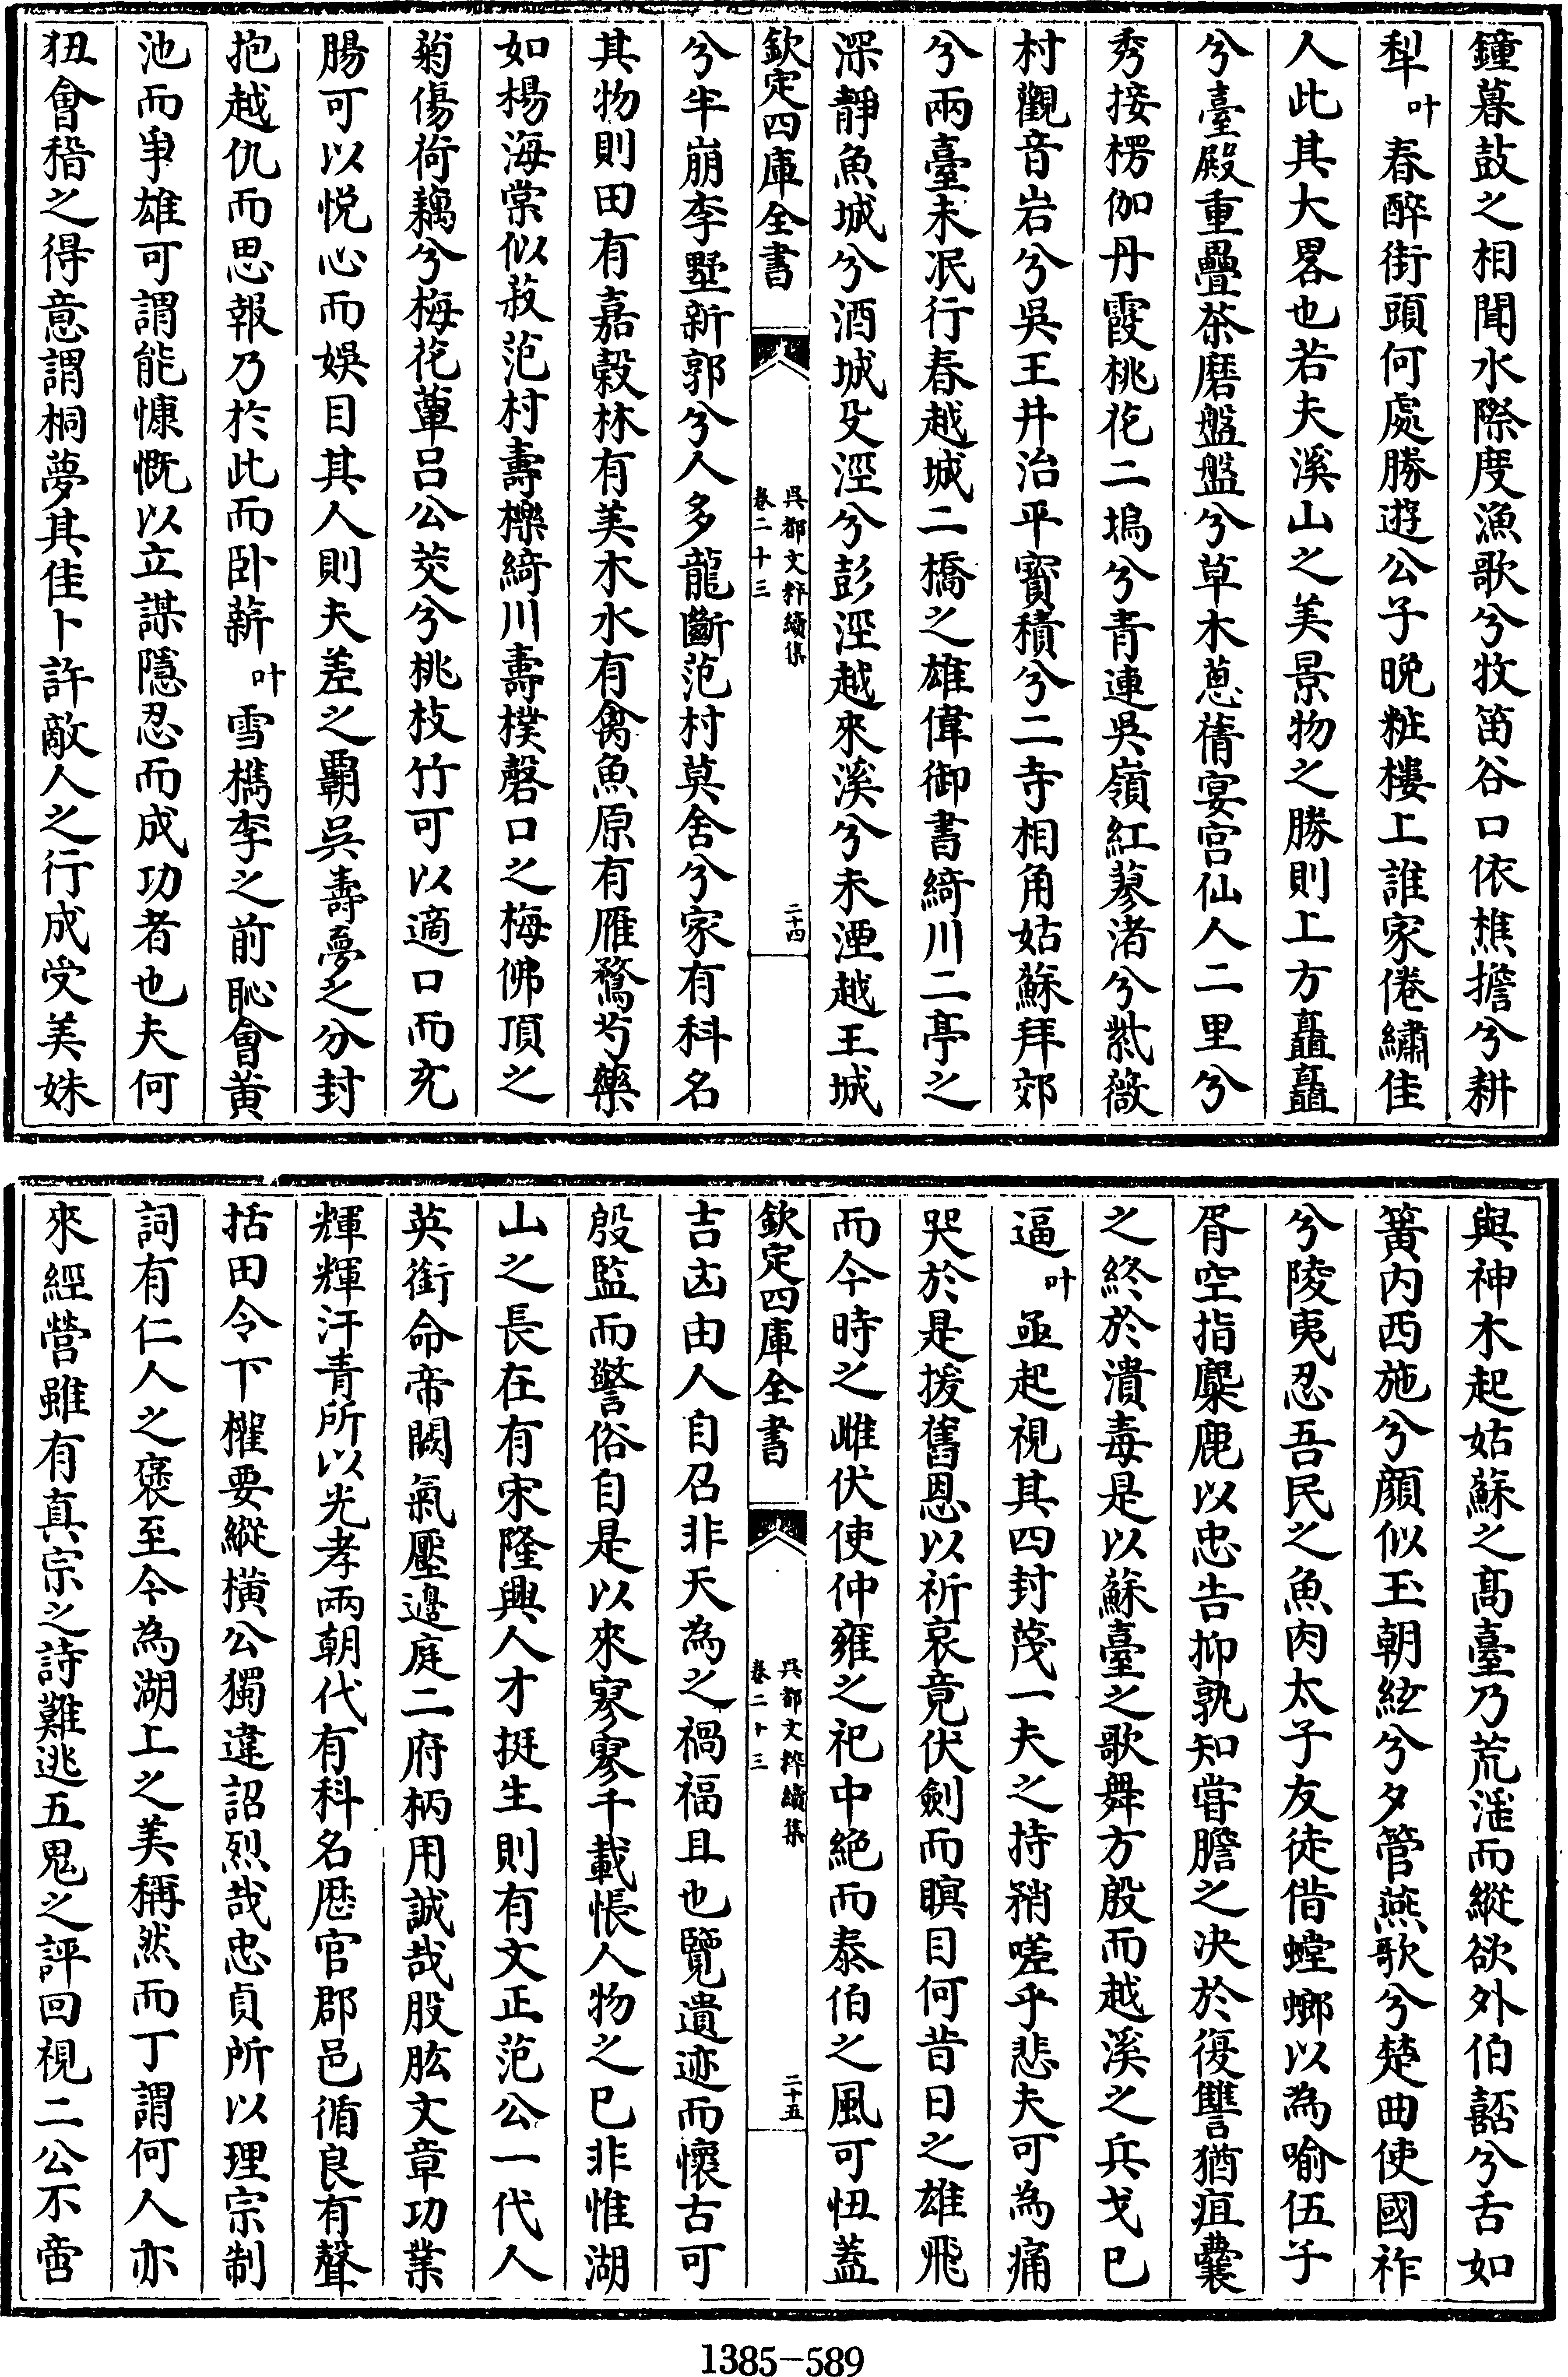 鐘暮鼓之相聞水際度漁歌兮牧笛谷口依樵擔兮耕
犁叶春醉街頭何處勝遊公子晩粧樓上誰家倦繡佳
人此其大畧也若夫溪山之美景物之勝則上方矗矗
兮臺殿重疊茶磨盤盤兮草木蔥蒨宴宫仙人二里兮
秀接楞伽丹霞桃花二塢兮青連吳嶺紅蓼渚兮紫薇
村觀音岩兮吳王井治平寳積兮二寺相角姑蘇拜郊
兮兩臺未泯行春越城二橋之雄偉御書綺川二亭之
深靜魚城兮酒城殳涇兮彭涇越來溪兮未湮越王城
欽定四庫全書
吳都文粹續集
卷二十三
二十四
兮半崩李墅新郭兮人多龍斷范村莫舍兮家有科名
其物則田有嘉穀林有美木水有禽魚原有雁鶩芍藥
如楊海棠似菽范村壽櫟綺川壽樸磬口之梅佛頂之
菊傷荷藕兮梅花蕈吕公茭兮桃枝竹可以適口而充
腸可以悦心而娛目其人則夫差之霸吳壽夢之分封
抱越仇而思報乃於此而卧薪叶雪檇李之前恥會黄
池而爭雄可謂能慷慨以立謀隱忍而成功者也夫何
狃會稽之得意謂桐夢其佳卜許敵人之行成受美姝
與神木起姑蘇之髙臺乃荒滛而縱欲外伯嚭兮舌如
簧内西施兮顔似玉朝絃兮夕管燕歌兮楚曲使國祚
兮陵夷忍吾民之魚肉太子友徒借螳螂以為喻伍子
胥空指麋鹿以忠告抑孰知嘗膽之决於復讐猶疽囊
之終於潰毒是以蘇臺之歌舞方殷而越溪之兵戈已
逼叶亟起視其四封蔑一夫之持矟嗟乎悲夫可為痛
哭於是援舊恩以祈哀竟伏劍而瞑目何昔日之雄飛
而今時之雌伏使仲雍之祀中絶而泰伯之風可忸蓋
欽定四庫全書
吳都文粹續集
卷二十三
二十五
吉凶由人自召非天為之禍福且也覽遺迹而懷古可
殷監而警俗自是以來寥寥千載悵人物之已非惟湖
山之長在有宋隆興人才挺生則有文正范公一代人
英銜命帝闕氣壓邊庭二府柄用誠哉股肱文章功業
輝輝汗青所以光孝兩朝代有科名歴官郡邑循良有聲
括田令下權要縱横公獨違詔烈哉忠貞所以理宗制
詞有仁人之褒至今為湖上之美稱然而丁謂何人亦
來經營雖有真宗之詩難逃五鬼之評回視二公不啻
1385-589